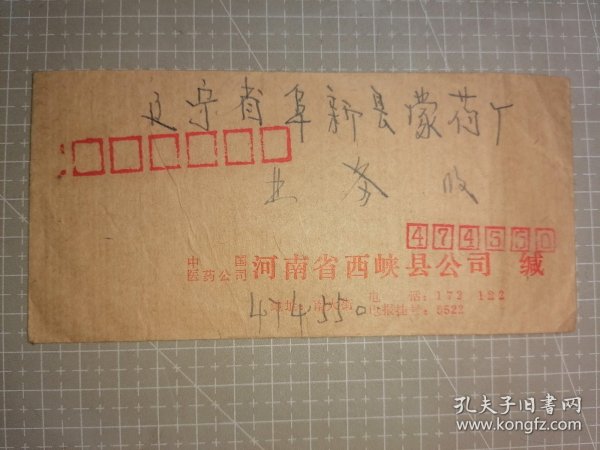 辽宁省阜新县蒙药厂
业务 收
474550
中国
医药公司 河南省西峡县公司 缄
地址：南大街 电话：172 122
电报挂号：5522
474550
孔夫子旧书网
www.kongfz.com